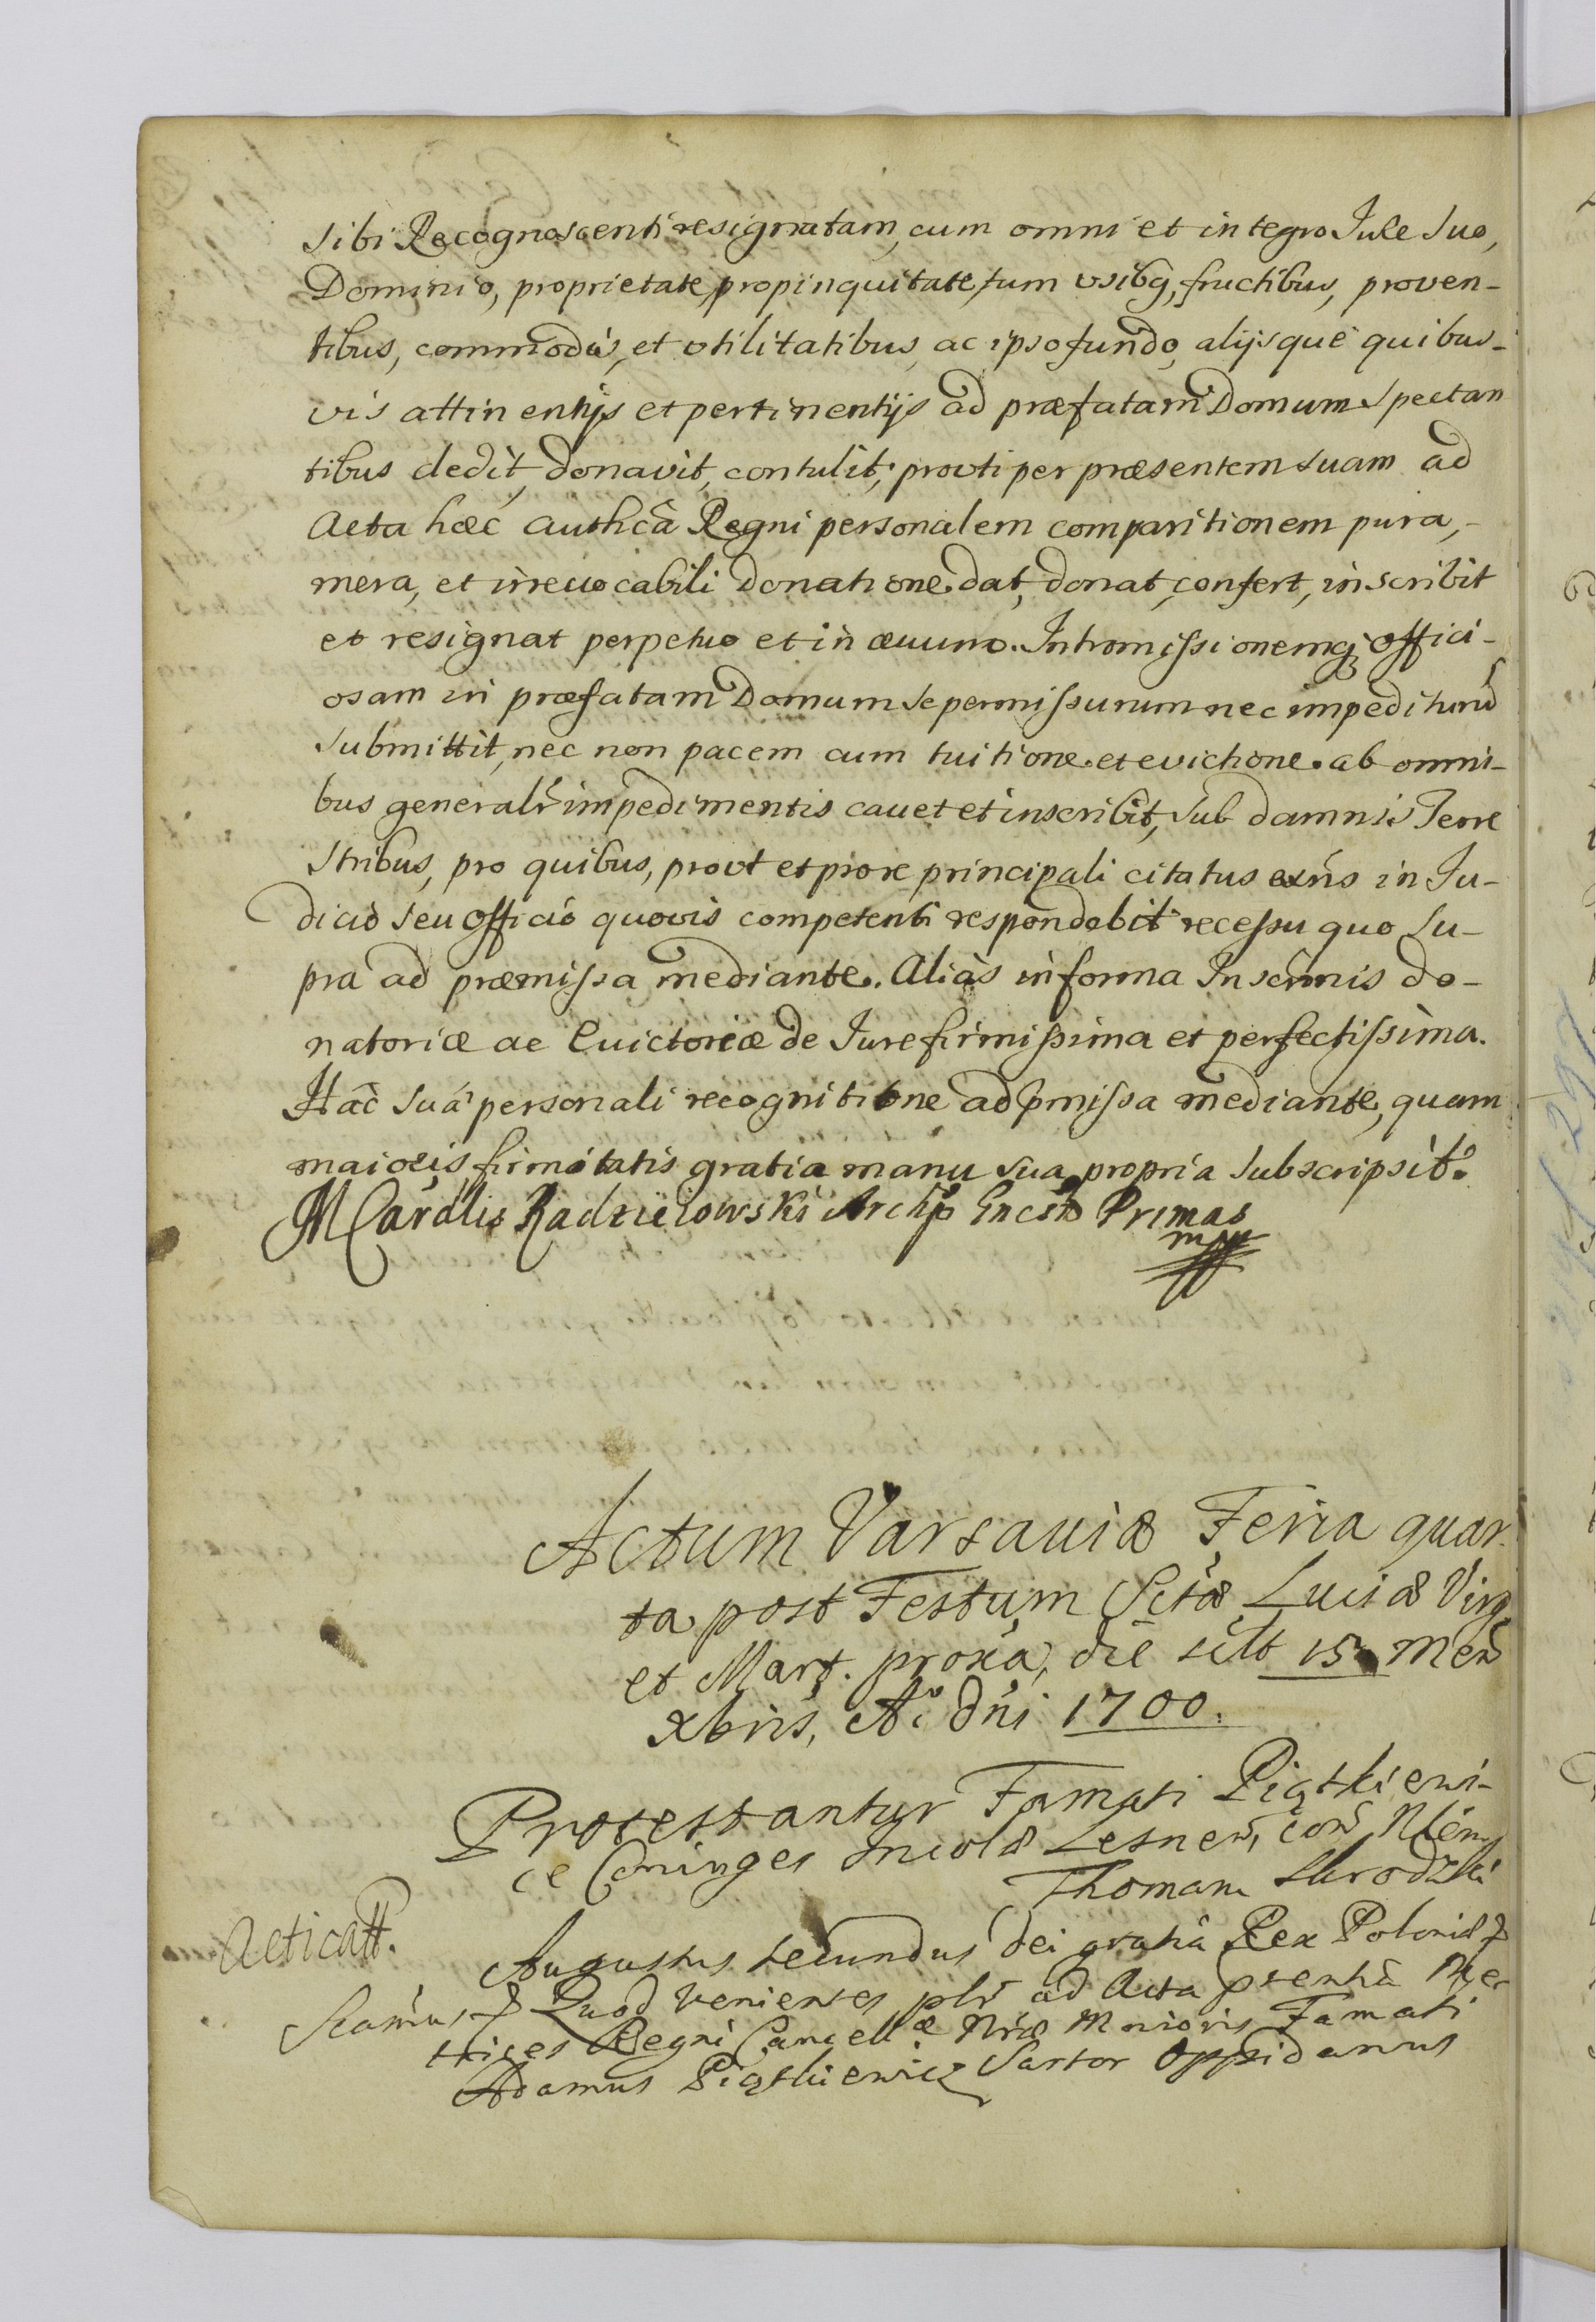 sibi Recognoscenti resignatam, cum omni et integro Jure suo,
Dominio, proprietate, propinquitate, tum usibq, fructibus, proven-
tibus, commodis, et utilitatibus, ac ipso fundo, alijsque quibus-
vis attinentijs et pertinentijs ad præfatam Domum spectan
tibus dedit, donavit, contulit, provti per præsentem suam ad
Acta hæc Authca Regni personalem comparitionem pura,
mera, et irrevocabili donatione dat, donat, confert, inscribit
et resignat perpetuo et in ævum. Intromissionemq offici-
osam in præfatam Domum se permissurum nec impeditur
submittit, nec non pacem cum tuitione et evictione ab omni-
bus generalr impedimentis cavet et inscribit, sub damnis Terre
stribus, pro quibus, provt et pro re principali citatus exns in Ju-
dicio seu Officio quovis competenti respondebit recessu quo su-
pra ad præmissa mediante. Alias in forma Inscrnis do-
natoriæ ac Evictoriæ de Jure firmissima et perfectissima.
Hac sua personali recognitione ad pmissa mediante, quam
maioris firmitatis gratia manu sua propria subscripsit.
M Cardlis Radzieiowski Archpo Gnesn Primas
mpp
Actum Varsaviæ Feria quar-
ta post Festum Sctæ Luciæ Virg
et Mart. proxa, die scilt 15 Men
Xbris, Ao dni 1700.
Protestantur Famati Piątkiewi-
ce Coniuges Incolæ Lesnen, con Nlem
Thomam Skrodzki
Acticatt.
Augustus Secundus Dei gratia Rex Poloniæ
Scamus Quod venientes plr ad Acta psentia Me
trices Regni Cancellæ Nræ Minoris Famati
Adamus Piątkiewicz Sartor Oppidanus